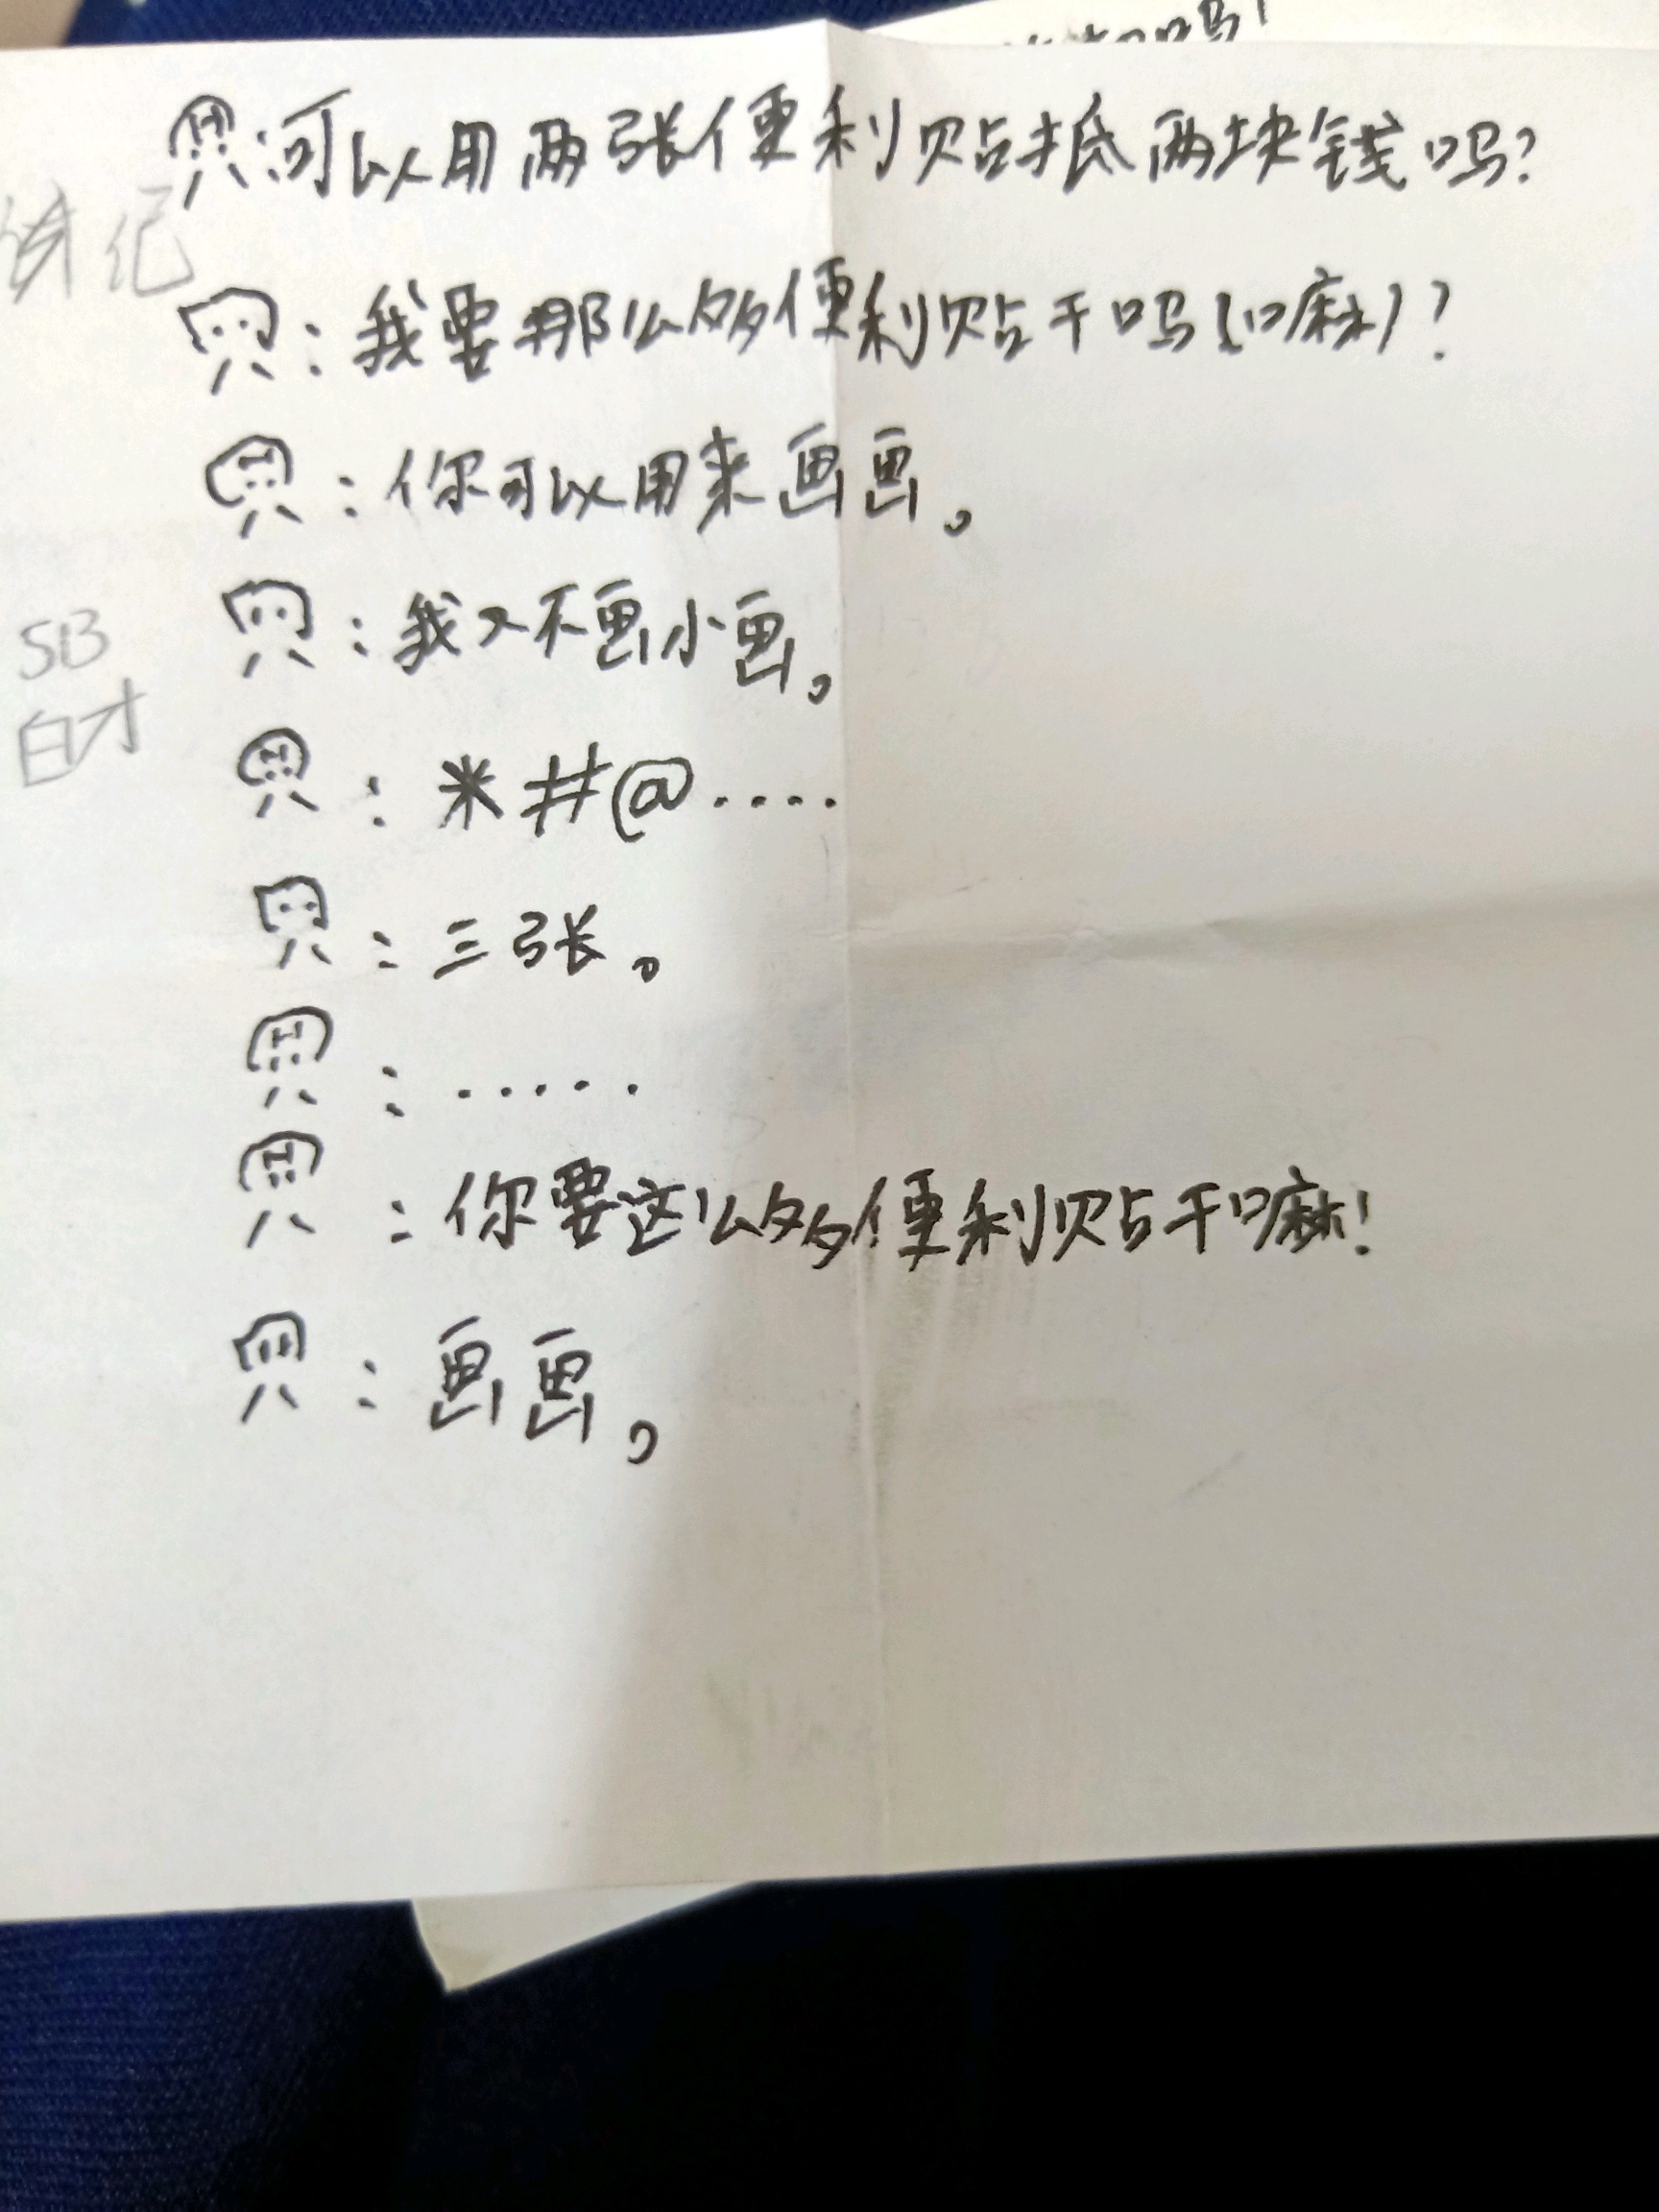 ：可以用两张便利贴抵两块钱吗？
：我要那么多便利贴干吗（嘛）？
：你可以用来画画。
：我又不画小画。
：米#@....
：三张。
：.....
：你要这么多便利贴干嘛！
：画画。
SB